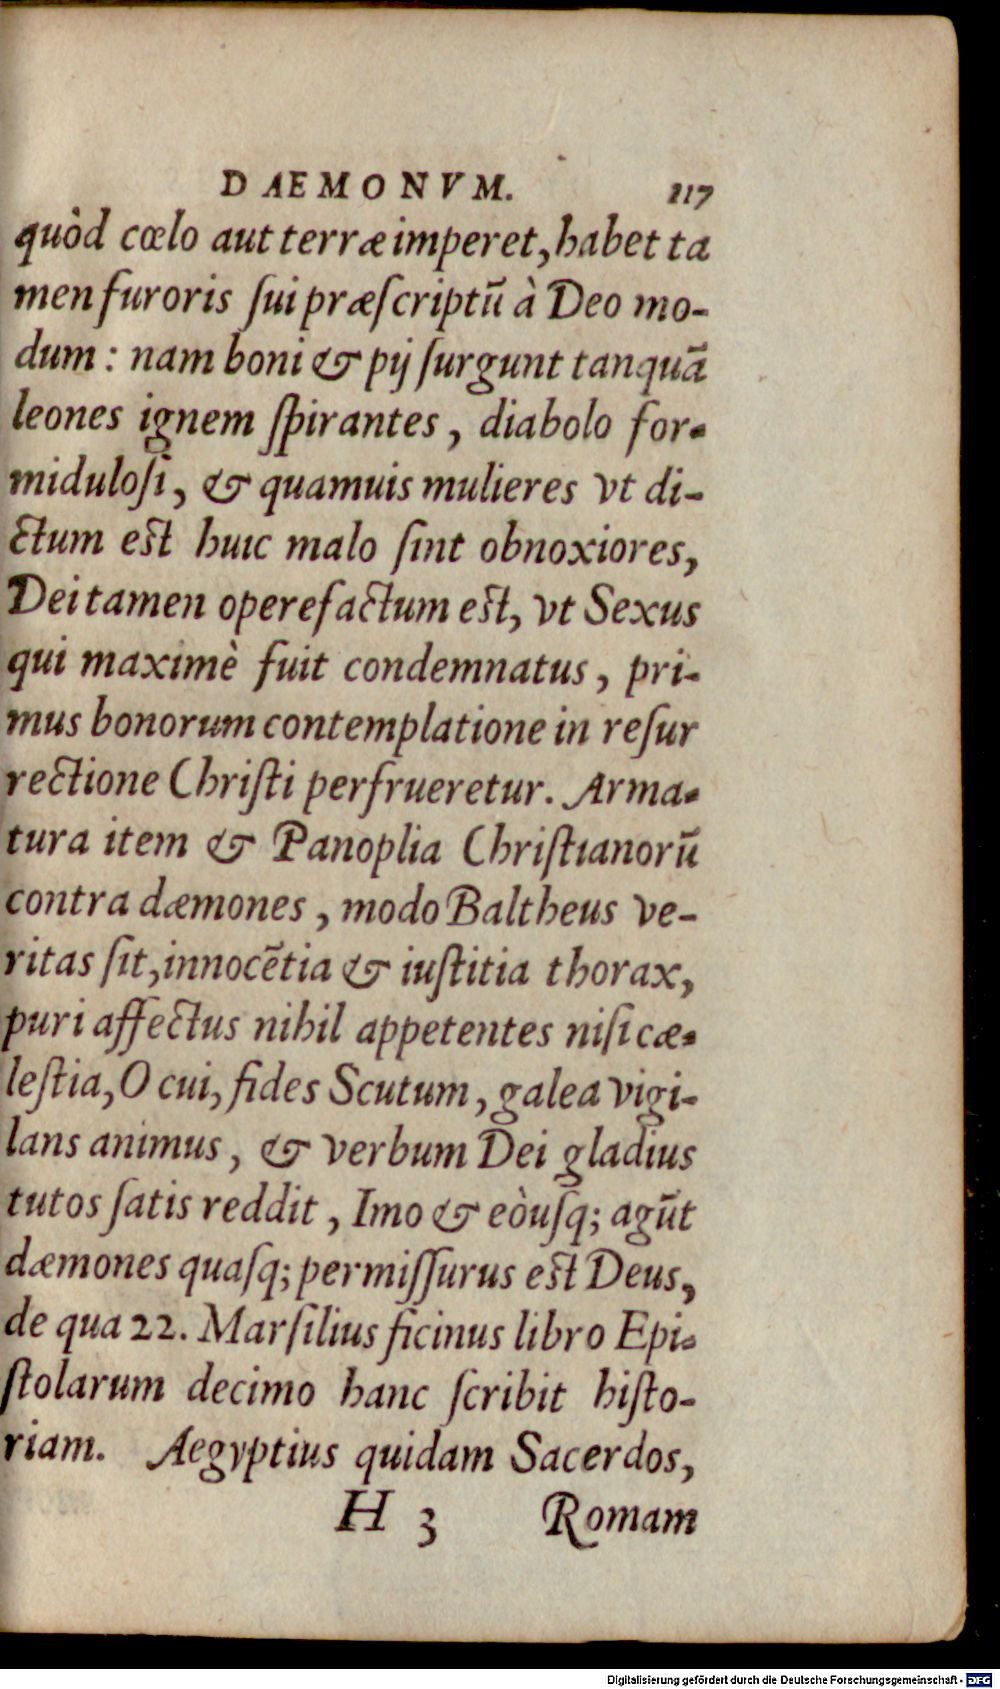 DAEMONVM. 117
quòd cœlo aut terræ imperet, habet ta
men furoris ſui præſcriptū à Deo mo-
dum: nam boni & pij ſurgunt tanquā
leones ignem ſpirantes, diabolo for-
miduloſi, & quamuis mulieres vt di-
ctum est huic malo ſint obnoxiores,
Dei tamen opere factum est, vt Sexus
qui maximè fuit condemnatus, pri-
mus bonorum contemplatione in reſur
rectione Chriſti perfrueretur. Arma-
tura item & Panoplia Chriſtianorū
contra dæmones, modo Baltheus ve-
ritas ſit, innocētia & iuſtitia thorax,
puri affectus nihil appetentes niſi cæ-
leſtia, O cui, fides Scutum, galea vigi-
lans animus, & verbum Dei gladius
tutos ſatis reddit, Imo & eòuſq; agūt
dæmones quaſq; permiſſurus est Deus,
de qua 22. Marſilius ficinus libro Epi-
ſtolarum decimo hanc ſcribit hiſto-
riam. Aegyptius quidam Sacerdos,
H 3 Romam
Digitalisierung gefördert durch die Deutsche Forschungsgemeinschaft - DFG